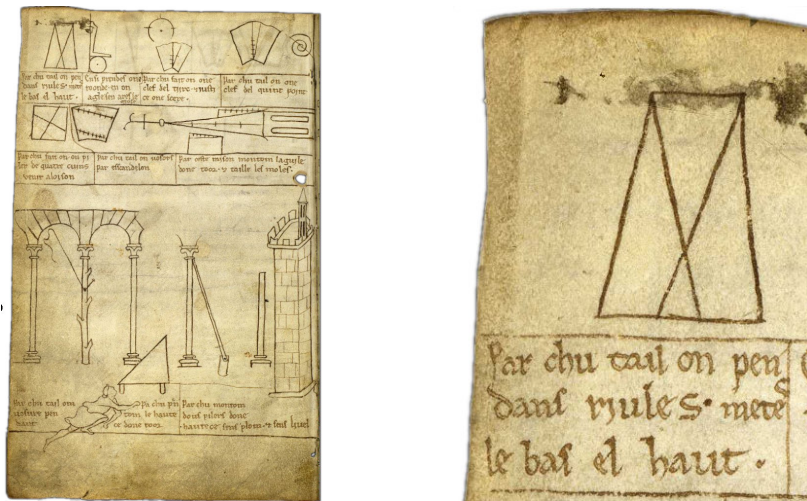 Par chu tail on pen
dans riules. metes
le bas el haut.
Par chu fait on one
clef del tierc
ce one scere.
Par chu tail on one
clef del quint point
Par chu fait on on pi
ler de quatre cuins
venir a loison
Par chu tail on vosors
par esscandelon
Par ceste raison montom laguile
done toor. taille les moles.
Par chu tail om
vosure pen
dant
Pa chu pren
tom le haute
ce done toor.
Par chu montom
dous pilers done
hautece sens plom. sens livel
Par chu tail on pen
dans riules. metes
le bas el haut.